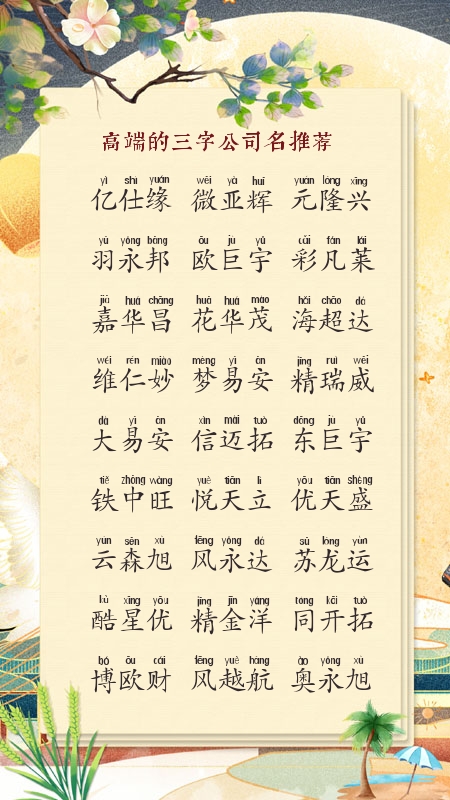 高端的三字公司名推荐
yì shì yuán wēi yà huī yuán lóng xīng
亿仕缘 微亚辉 元隆兴
yǔ yǒng bāng ōu jù yǔ cǎi fán lái
羽永邦 欧巨宇 彩凡莱
jiā huá chāng huā huá mào hǎi chāo dá
嘉华昌 花华茂 海超达
wéi rén miào mèng yì ān jīng ruì wēi
维仁妙 梦易安 精瑞威
dà yì ān xìn mài tuò dōng jù yǔ
大易安 信迈拓 东巨宇
tiě zhōng wàng yuè tiān lì yōu tiān shèng
铁中旺 悦天立 优天盛
yún sēn xù fēng yǒng dá sū lóng yùn
云森旭 风永达 苏龙运
kù xīng yōu jīng jīn yáng tóng kāi tuò
酷星优 精金洋 同开拓
bó ōu cái fēng yuè háng ào yǒng xù
博欧财 风越航 奥永旭